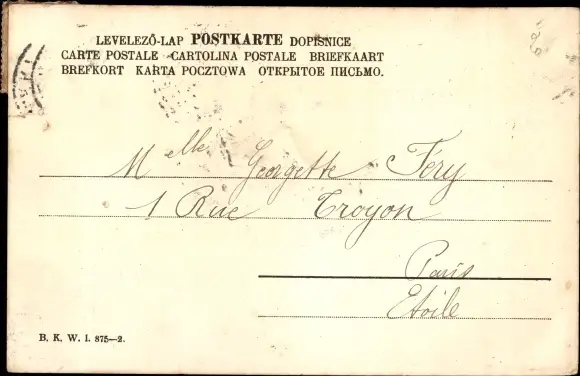 LEVELEZŐ-LAP POSTKARTE DOPISNICE
CARTE POSTALE CARTOLINA POSTALE BRIEFKAART
BREFKORT KARTA POCZTOWA ОТКРЫТОЕ ПИСЬМО.
Melle Georgette Fery
1 Rue Troyon
Paris
Etoile
B. K. W. I. 875—2.